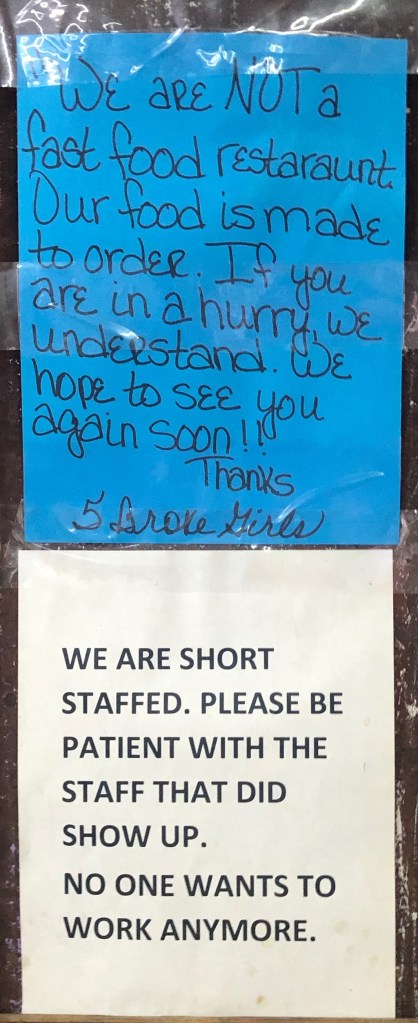 WE ARE NOT a
fast food restaraunt.
Our food is made
to order. If you
are in a hurry, we
understand. We
hope to see you
again soon!!
Thanks
5 Broke Girls
WE ARE SHORT
STAFFED. PLEASE BE
PATIENT WITH THE
STAFF THAT DID
SHOW UP.
NO ONE WANTS TO
WORK ANYMORE.